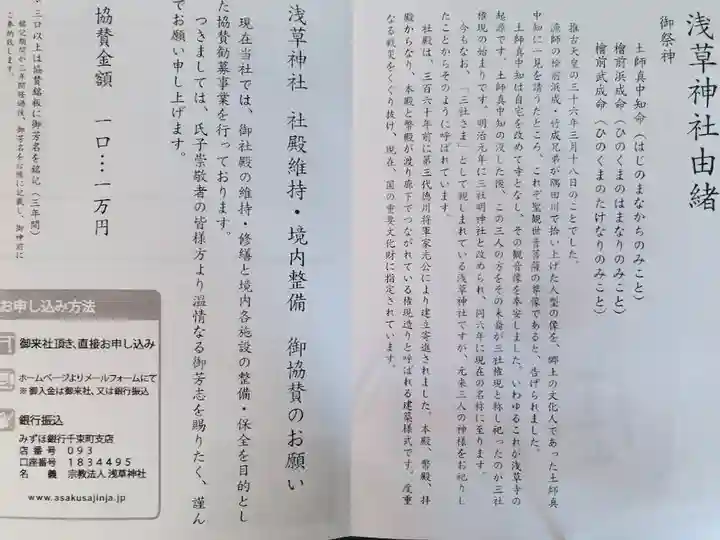 浅草神社由緒
御祭神
土師真中知命(はじのまなかちのみこと)
檜前浜成命(ひのくまのはまなりのみこと)
檜前武成命(ひのくまのたけなりのみこと)
推古天皇の三十六年三月十八日のことでした。
漁師の檜前浜成・竹成兄弟が隅田川で拾い上げた人型の像を、郷土の文化人であった土師真
中知に一見を請うたところ、これぞ聖観世音菩薩の尊像であると、告げられました。
土師真中知は自宅を改めて寺となし、その観音像を奉安しました。いわゆるこれが浅草寺の
起源です。土師真中知の没した後、この三人の方をその末裔が三社権現と称し祀ったのが三社
権現の始まりです。明治元年に三社明神社と改められ、同六年に現在の名称に至ります。
今もなお、「三社さま」として親しまれている浅草神社ですが、元来三人の神様をお祀りし
たことからそのように呼ばれています。
社殿は、三百六十年前に第三代徳川将軍家光公により建立寄進されました。本殿、幣殿、拝
殿からなり、本殿と幣殿が渡り廊下でつながれている権現造りと呼ばれる建築様式です。度重
なる戦災をくぐり抜け、現在、国の重要文化財に指定されています。
浅草神社 社殿維持・境内整備 御協賛のお願い
現在当社では、御社殿の維持・修繕と境内各施設の整備・保全を目的とし
た協賛勧募事業を行っております。
つきましては、氏子崇敬者の皆様方より温情なる御芳志を賜りたく、謹ん
でお願い申し上げます。
協賛金額 一口…一万円
三口以上は協賛銘板に御芳名を銘記(三年間)
銘記期間の三年間経過後、御芳名を台帳に記載し、御神前に
ご奉納致します。
お申し込み方法
御来社頂き、直接お申し込み
ホームページよりメールフォームにて
※御入金は御来社、又は銀行振込
銀行振込
みずほ銀行千束町支店
店番号 093
口座番号 1834495
名義 宗教法人 浅草神社
www.asakusajinja.jp